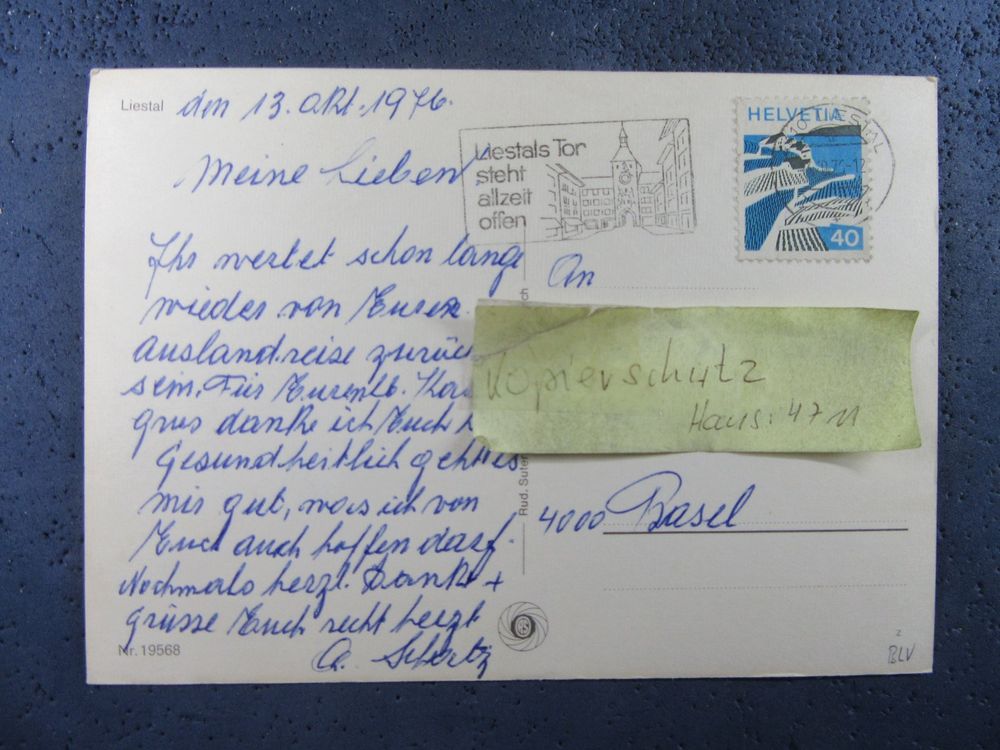 Liestal den 13. Okt. 1976.
Liestals Tor
steht
allzeit
offen
HELVETIA
40
Meine Lieben
Ihr werdet schon lange
wieder von Eurer
Auslandreise zurück
sein. Für Euren lb.
grus danke ich Euch
Gesundheitlich geht es
mir gut, was ich von
Euch auch hoffen darf.
Nochmals herzl. Dank +
grüsse Euch recht herzl
A. Schertz
Nr. 19568
An
Kopierschutz
Haus: 47 11
4000 Basel
Rud. Suter
BLV